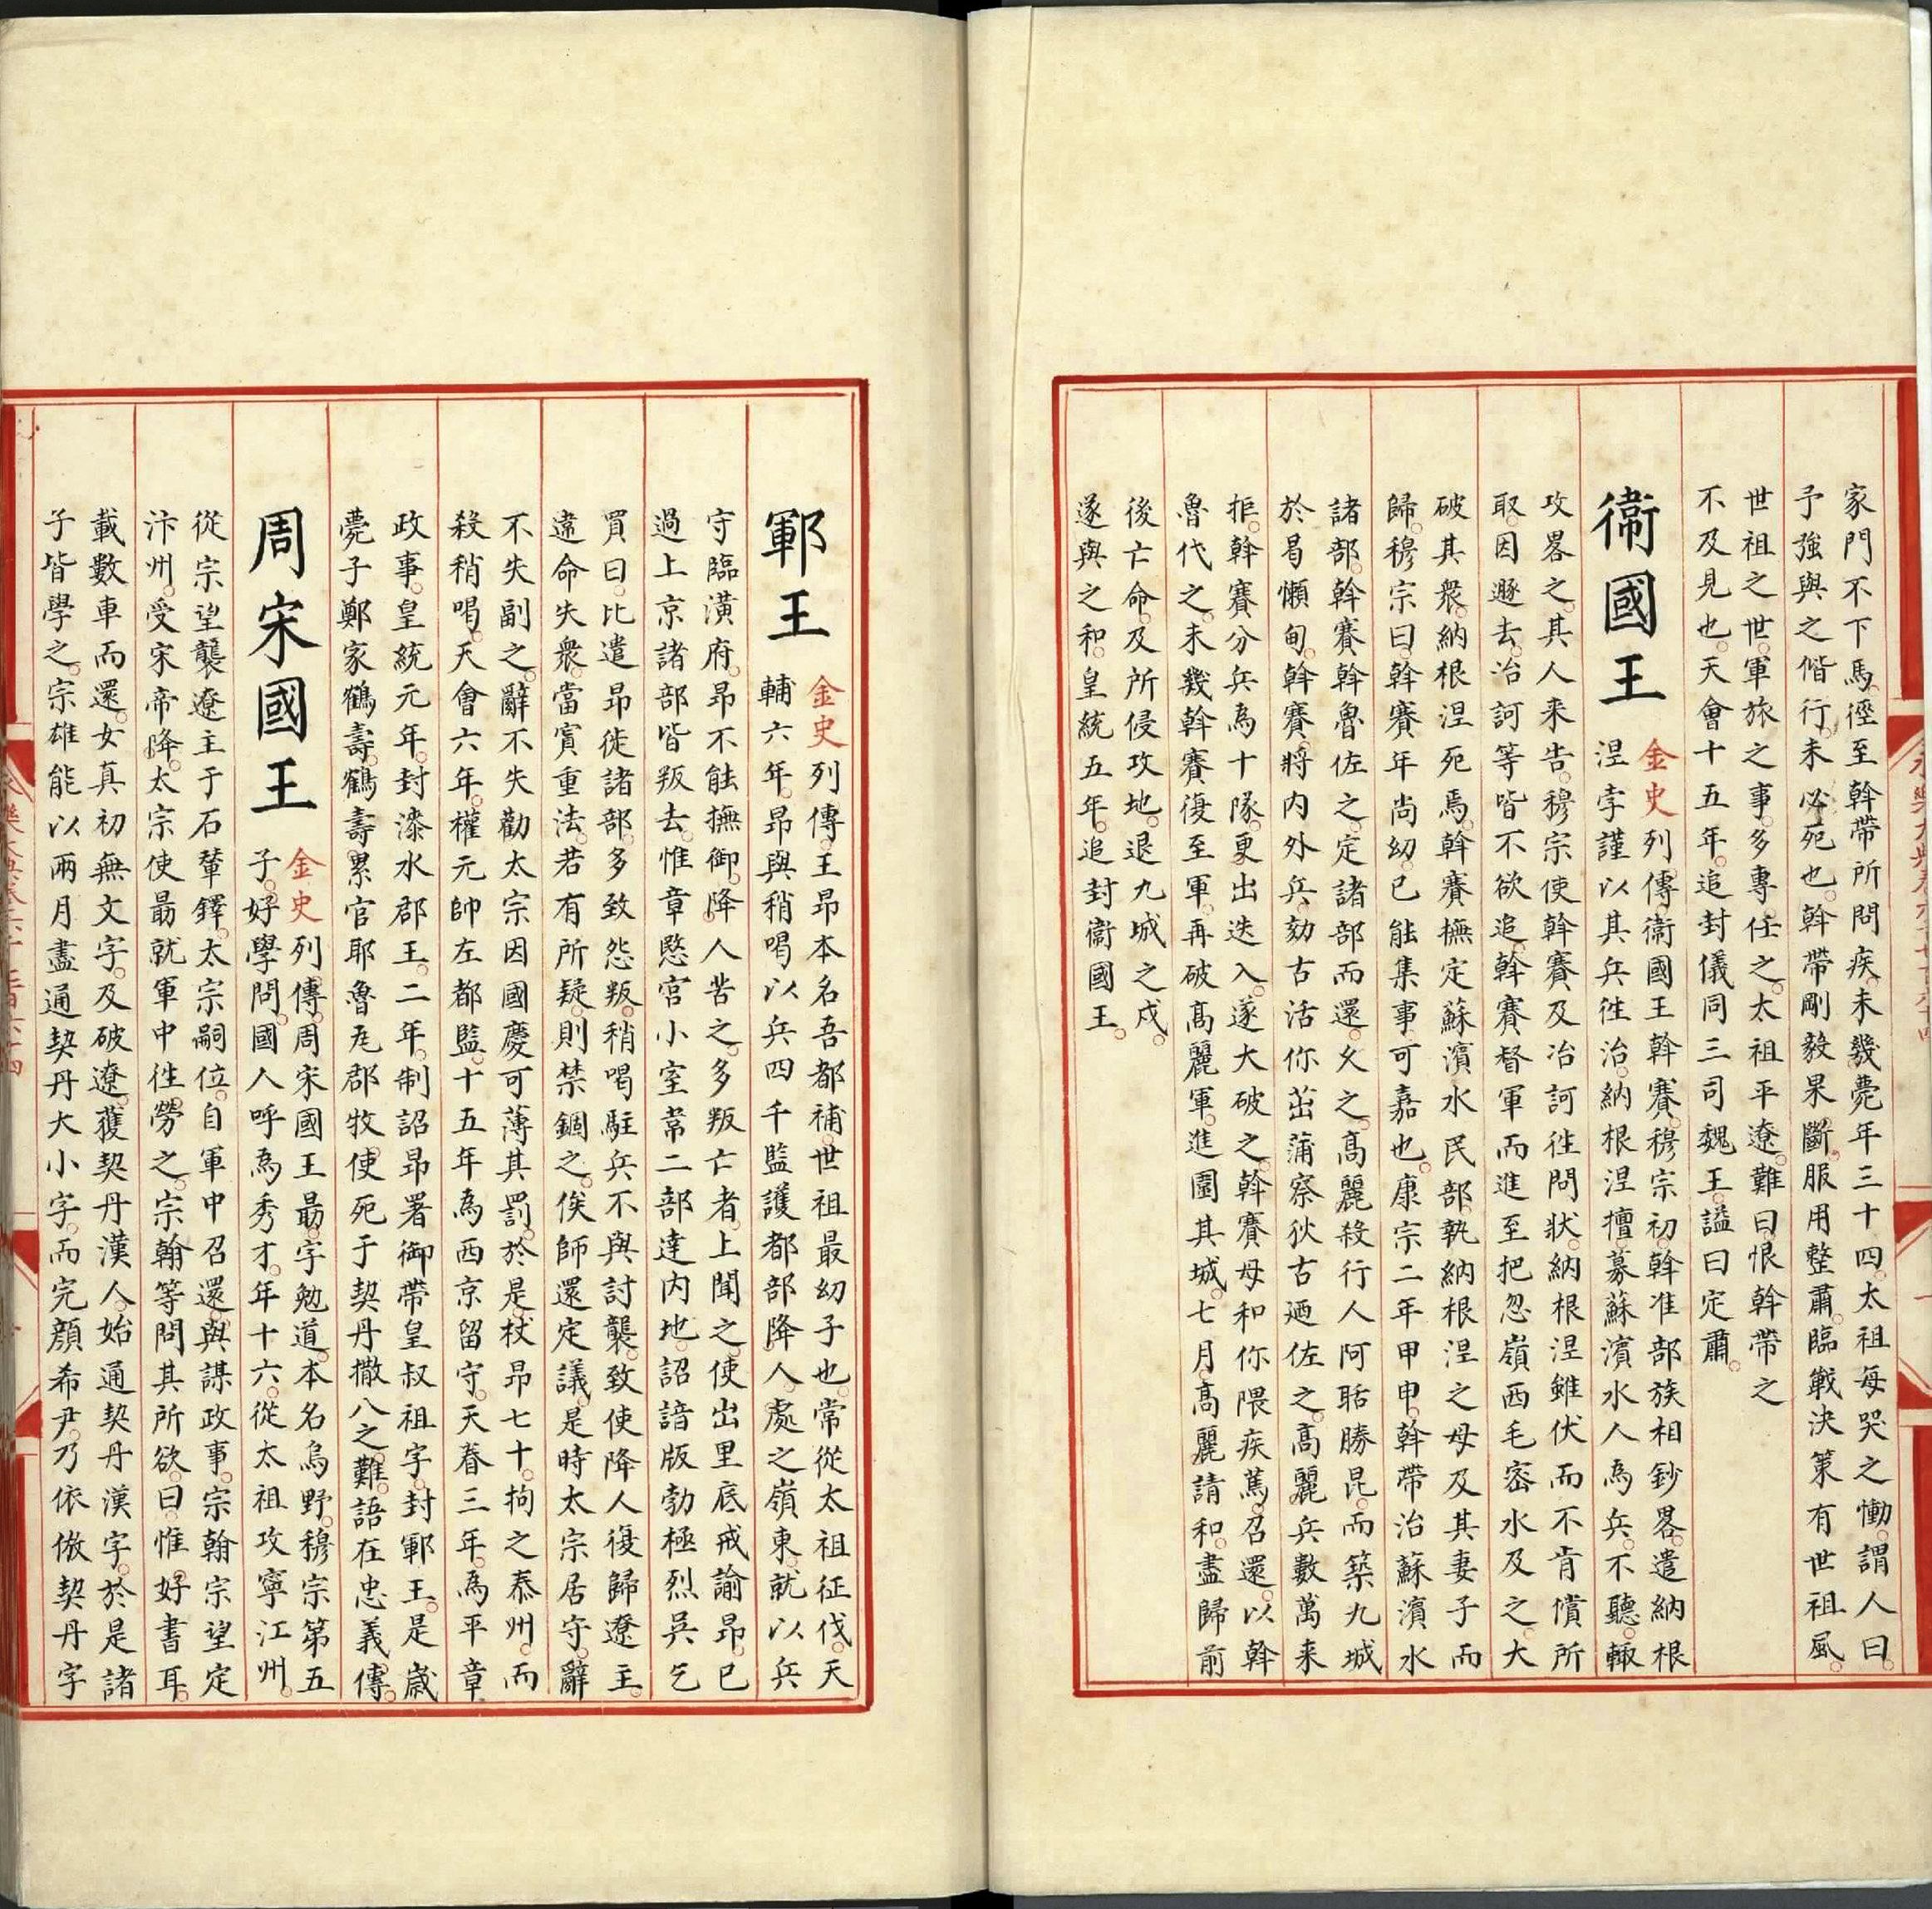 家門不下馬徑至斡帶所問疾未幾薨年三十四太祖每哭之慟謂人曰
予強與之偕行未必死也斡帶剛毅果斷服用整肅臨戰決策有世祖風
世祖之世軍旅之事多專任之太祖平遼難曰恨斡帶之
不及見也天會十五年追封儀同三司魏王諡曰定肅
衞國王
金史列傳衞國王斡賽穆宗初斡准部族相鈔畧遣納根
涅孛謹以其兵徃治納根涅擅募蘇濱水人為兵不聽輙
攻畧之其人来告穆宗使斡賽及冶訶徃問狀納根涅雖伏而不肯償所
取因遯去冶訶等皆不欲追斡賽督軍而進至把忽嶺西毛宻水及之大
破其衆納根涅死焉斡賽撫定蘇濱水民部執納根涅之母及其妻子而
歸穆宗曰斡賽年尚幼已能集事可嘉也康宗二年甲申斡帶治蘇濱水
諸部斡賽斡魯佐之定諸部而還久之高麗殺行人阿聒勝昆而築九城
於曷懶甸斡賽將内外兵劾古活你茁蒲察狄古廼佐之高麗兵數萬来
拒斡賽分兵為十隊更出迭入遂大破之斡賽母和你隈疾篤召還以斡
魯代之未幾斡賽復至軍再破高麗軍進圍其城七月高麗請和盡歸前
後亡命及所侵攻地退九城之戍
遂與之和皇統五年追封衞國王
鄆王
金史列傳王昂本名吾都補世祖最幼子也常從太祖征伐天
輔六年昂與稍喝以兵四千監護都部降人處之嶺東就以兵
守臨潢府昂不能撫御降人苦之多叛亡者上聞之使出里底戒諭昂已
過上京諸部皆叛去惟章愍宮小室韋二部達内地詔諳版勃極烈吳乞
買曰比遣昂徙諸部多致怨叛稍喝駐兵不與討襲致使降人復歸遼主
違命失衆當寘重法若有所疑則禁錮之俟師還定議是時太宗居守辭
不失副之辭不失勸太宗因國慶可薄其罰於是杖昂七十拘之泰州而
殺稍喝天會六年權元帥左都監十五年為西京留守天眷三年為平章
政事皇統元年封漆水郡王二年制詔昂署御帶皇叔祖字封鄆王是歲
薨子鄭家鶴壽鶴壽累官耶魯尫郡牧使死于契丹撒八之難語在忠義傳
周宋國王
金史列傳周宋國王勗字勉道本名烏野穆宗第五
子好學問國人呼為秀才年十六從太祖攻寧江州
從宗望襲遼主于石輦鐸太宗嗣位自軍中召還與謀政事宗翰宗望定
汴州受宋帝降太宗使勗就軍中徃勞之宗翰等問其所欲曰惟好書耳
載數車而還女真初無文字及破遼獲契丹漢人始通契丹漢字於是諸
子皆學之宗雄能以兩月盡通契丹大小字而完顏希尹乃依倣契丹字